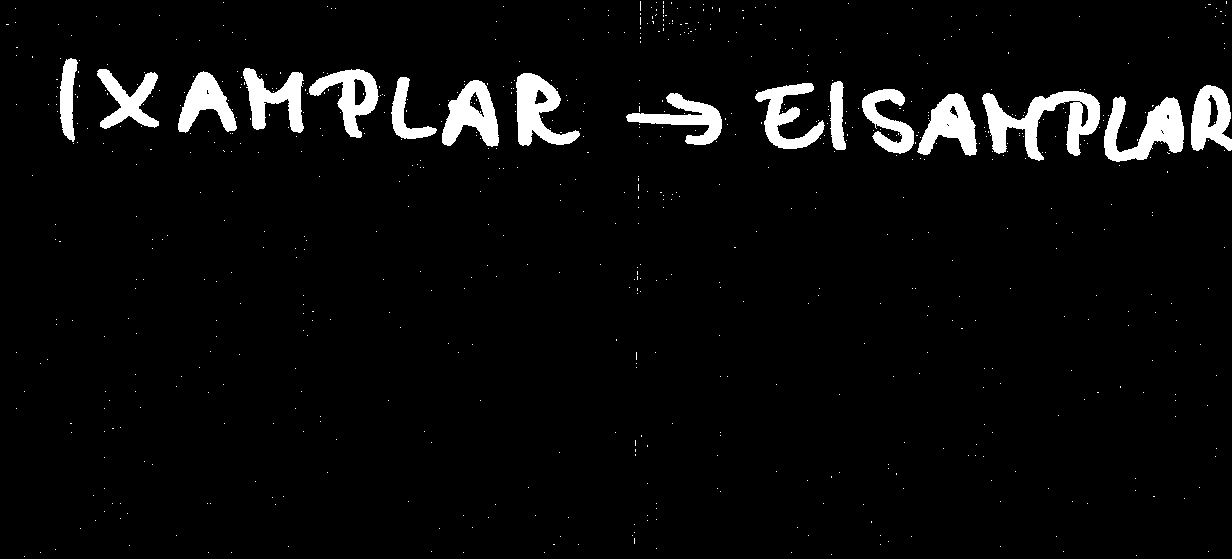 IXAMPLAR → EISAMPLAR